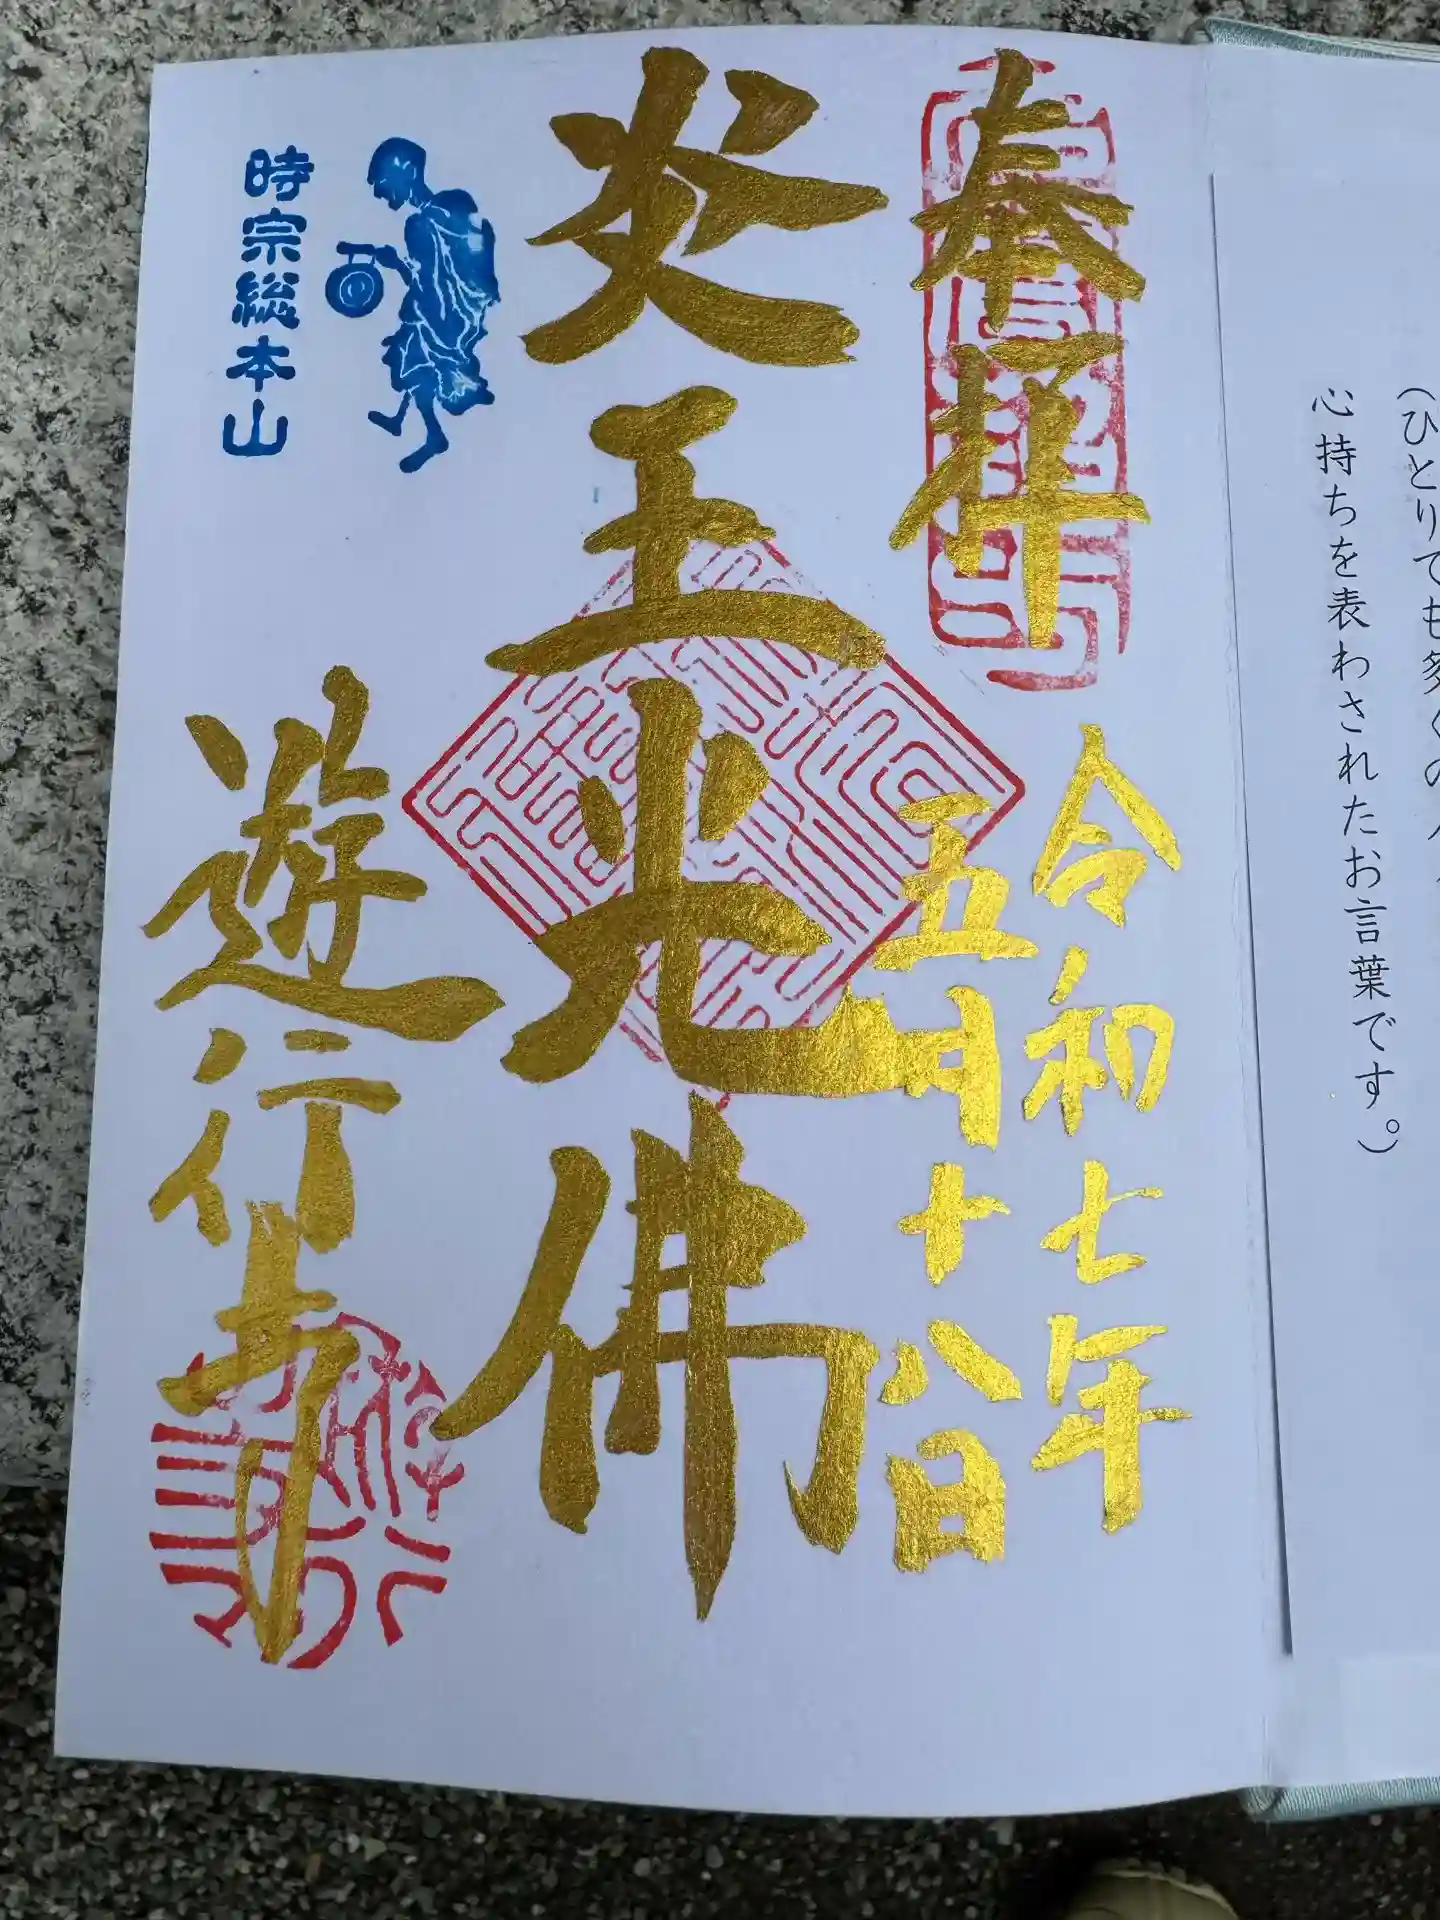 心持ちを表わされたお言葉です。)
奉拝
令和七年
五月十八日
炎王光佛
時宗総本山
遊行寺